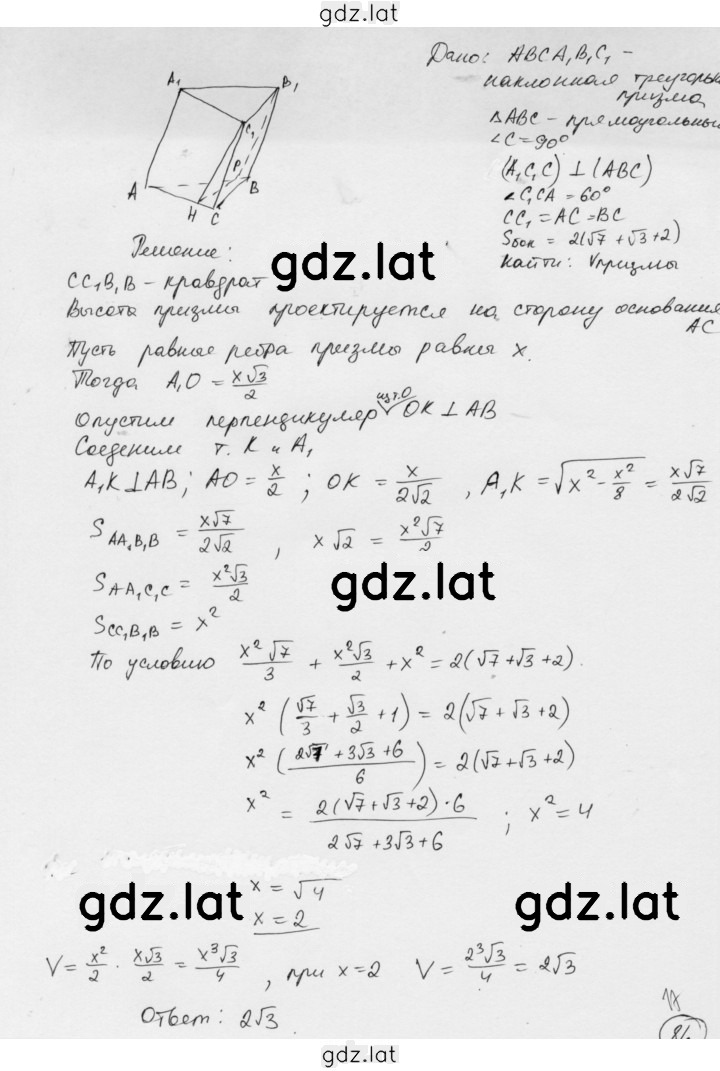 gdz.lat
Дано: ABCA₁B₁C₁ –
наклонная треуголь
призма
△ABC – прямоугольный
∠C = 90°
(A₁C₁C) ⊥ (ABC)
∠C₁CA = 60°
CC₁ = AC = BC
Sбок = 2(√7 + √3 + 2)
Найти: Vпризмы
A₁ B₁ C₁ P A B H C
Решение:
gdz.lat
CC₁B₁B – кравдрат
Высота призмы проектируется на сторону основания
AC
Пусть равные ребра призмы равны x.
Тогда A₁O = x√3/2
Опустим перпендикуляр из т.O OK ⊥ AB
Соединим т. K и A₁
A₁K ⊥ AB; AO = x/2 ; OK = x/2√2 , A₁K = √(x² – x²/8) = x√7/2√2
S AA₁B₁B = x√7/2√2 , x√2 = x²√7/2
gdz.lat
S AA₁C₁C = x²√3/2
S CC₁B₁B = x²
По условию x²√7/3 + x²√3/2 + x² = 2(√7 + √3 + 2).
x² (√7/3 + √3/2 + 1) = 2(√7 + √3 + 2)
x² (2√7 + 3√3 + 6/6) = 2(√7 + √3 + 2)
x² = 2(√7 + √3 + 2) · 6/2√7 + 3√3 + 6 ; x² = 4
gdz.lat x = √4 gdz.lat
x = 2
V = x²/2 · x√3/2 = x³√3/4 , при x = 2 V = 2³√3/4 = 2√3
Ответ: 2√3
gdz.lat